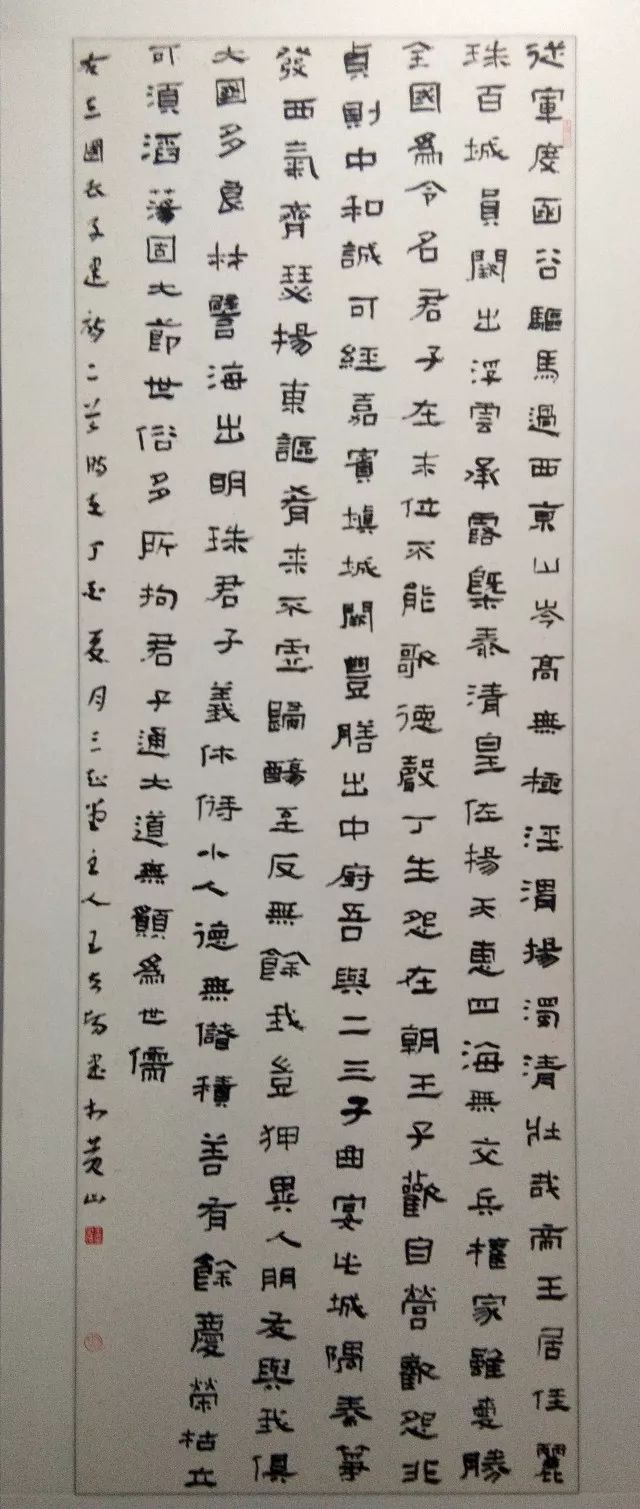 從軍度函谷驅馬過西京山岑高無極涇渭揚濁清壯哉帝王居佳麗
珠百城員闕出浮雲承露槩泰清皇佐揚天惠四海無交兵權家雖愛勝
全國為令名君子在末位不能歌德聲丁生怨在朝王子歡自營歡怨非
貞則中和誠可經嘉賓填城闕豐膳出中廚吾與二三子曲宴此城隅秦箏
發西氣齊瑟揚東謳肴来不虛歸觴至反無餘我豈狎異人朋友與我俱
大國多良材譬海出明珠君子義休偫小人德無儲積善有餘慶榮枯立
可須滔蕩固大節世俗多所拘君子通大道無願為世儒
右三國子建詩二首時在丁酉夏月三堂主人王書於黃山